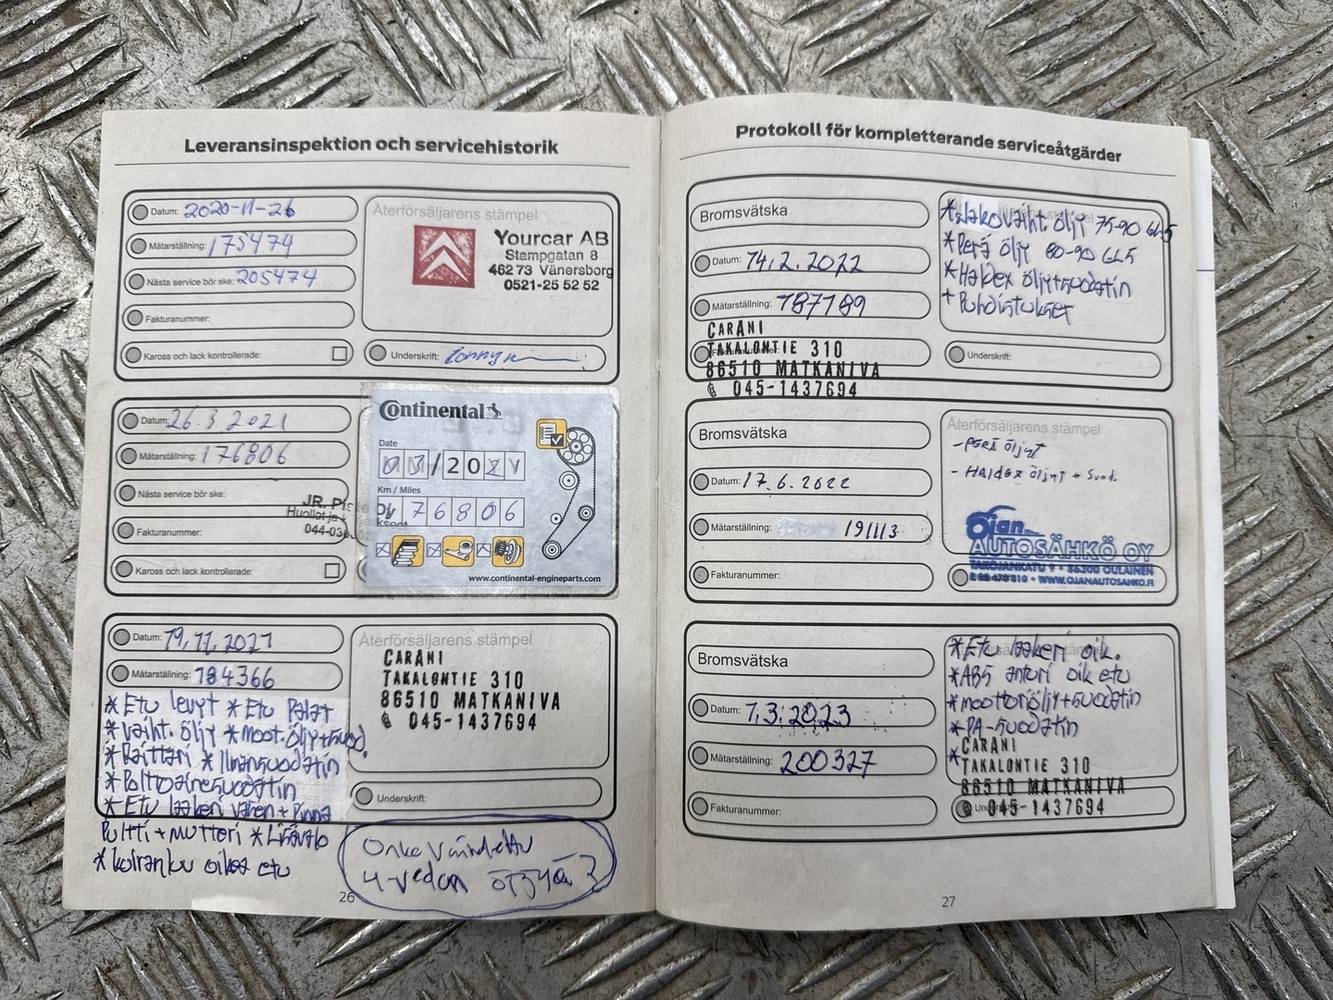 Leveransinspektion och servicehistorik
Datum: 2020-11-26
Mätarställning: 175474
Nästa service bör ske: 205474
Fakturanummer:
Kaross och lack kontrollerade:
Återförsäljarens stämpel
Yourcar AB
Stampgatan 8
462 73 Vänersborg
0521-25 52 52
Underskrift:
Datum: 26.3 2021
Mätarställning: 176806
Nästa service bör ske:
Fakturanummer:
Kaross och lack kontrollerade:
JR. Pis
Huollot ja
044-030
Continental
Date
/20
Km / Miles
76806
www.continental-engineparts.com
Datum: 19.11.2021
Mätarställning: 184366
* Etu levyt * Etu Palat
* Vaiht. öljy * Moot. öljy+suod.
* Raittari * Ilmansuodatin
* Polttoainesuodatin
* Etu laakeri vasen + Pinna
Pultti + mutteri *
* Koiranluu oikea etu
Återförsäljarens stämpel
CARANI
TAKALONTIE 310
86510 MATKANIVA
045-1437694
Underskrift:
Onko Vaihdettu
4-vedon öljyjä?
26
Protokoll för kompletterande serviceåtgärder
Bromsvätska
Datum: 14.2.2022
Mätarställning: 187189
CARANI
TAKALONTIE 310
86510 MATKANIVA
045-1437694
vaiht. öljy 75-90 GL5
* Perä öljy 80-90 GL5
* Haldex öljy+suodatin
+ Puhdistukset
Underskrift:
Bromsvätska
Datum: 17.6.2022
Mätarställning: 191113
Fakturanummer:
Återförsäljarens stämpel
- PERÄ öljyt
- HALDEX öljyt + Suod.
Ojan
AUTOSÄHKÖ OY
TAKOJANKATU 9 • 86300 OULAINEN
• WWW.OJANAUTOSAHKO.FI
Bromsvätska
Datum: 7.3.2023
Mätarställning: 200327
Fakturanummer:
* Etu laakeri oik.
* ABS anturi oik etu
* moottoriöljy+suodatin
* PA-suodatin
*
CARANI
TAKALONTIE 310
86510 MATKANIVA
045-1437694
27